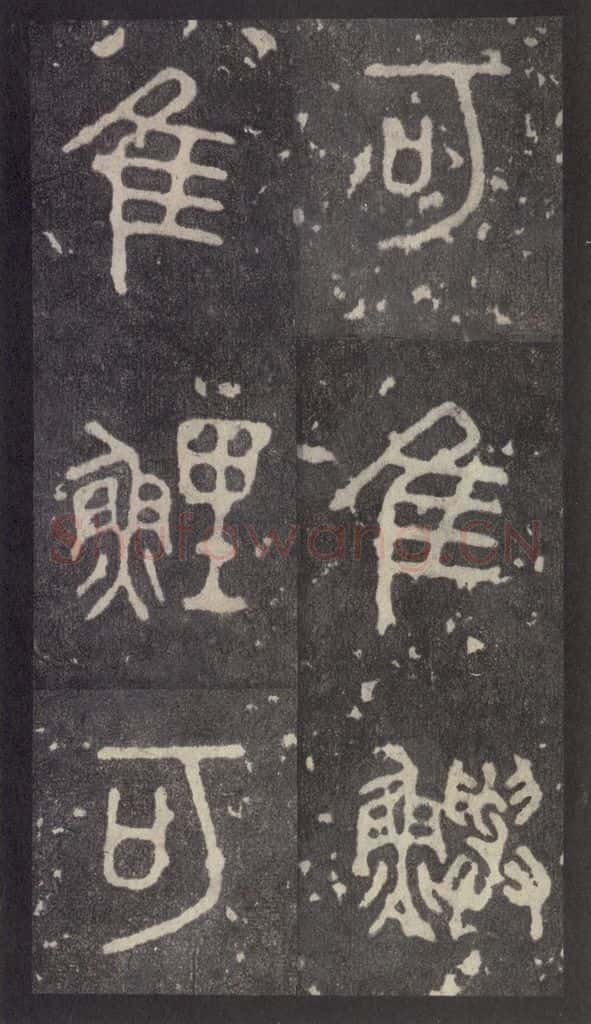 可隹鱮
隹鯉可
Shufawang.CN